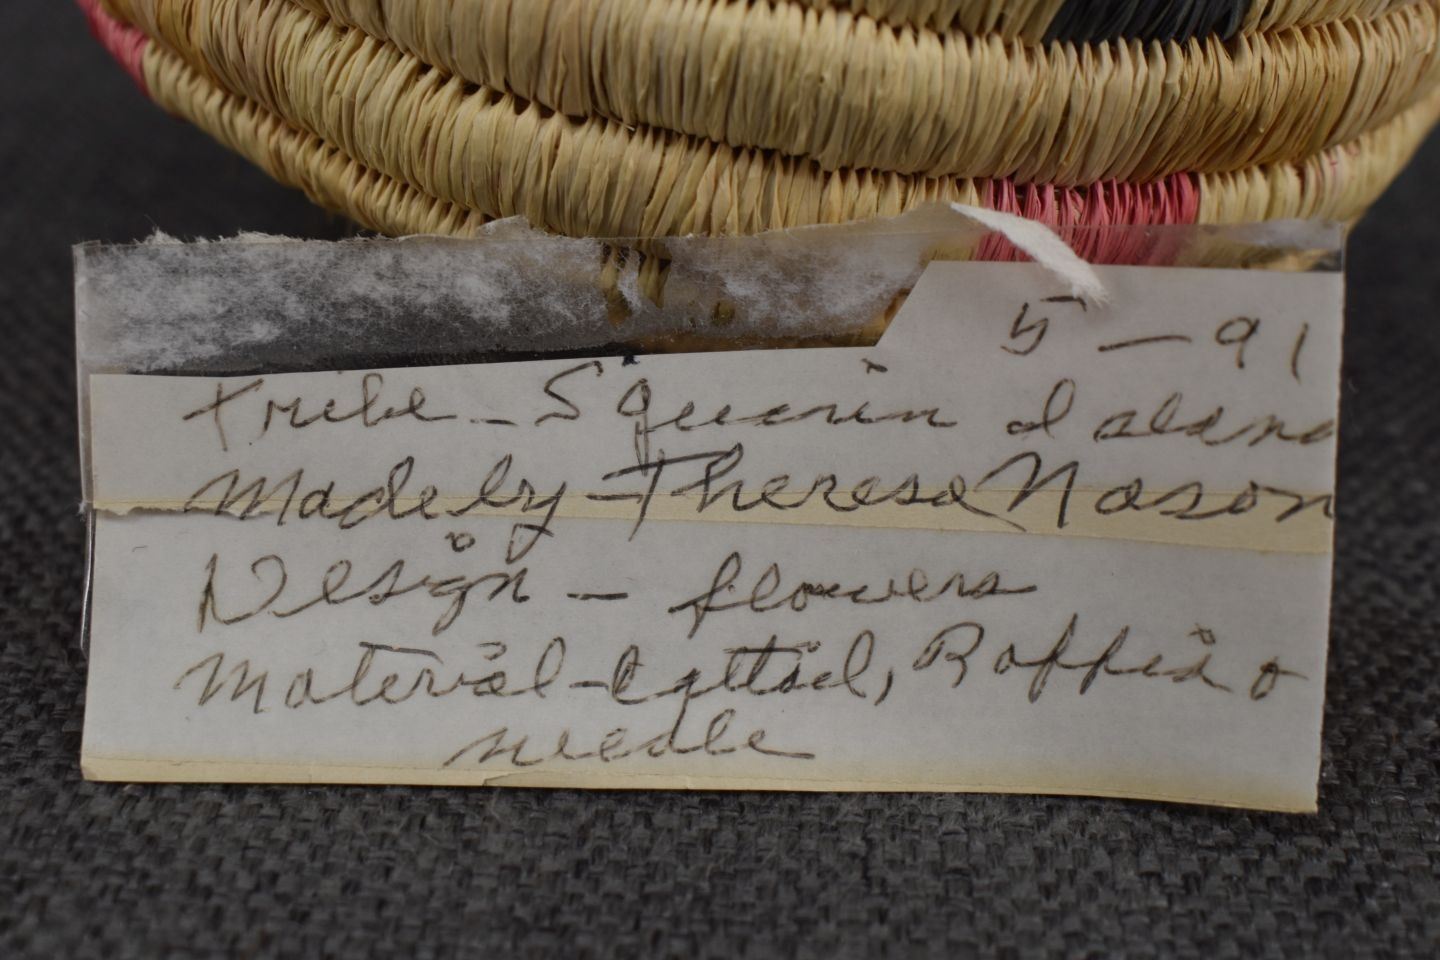 5-91
Tribe - Squaxin Island
Made by - Theresa Nason
Design - flowers
Material - Cattail, Raffia &
needle